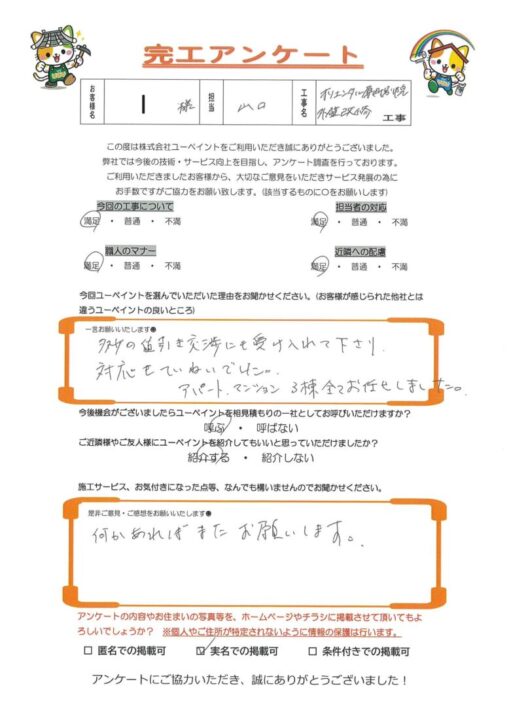 完工アンケート
お客様名 I 様 担当 山口 工事名 オリエンタル 工事
この度は株式会社ユーペイントをご利用いただき誠にありがとうございました。
弊社では今後の技術・サービス向上を目指し、アンケート調査を行っております。
ご利用いただきましたお客様から、大切なご意見をいただきサービス発展の為に
お手数ですがご協力をお願い致します。(該当するものに○をお願いします)
今回の工事について 担当者の対応
満足 ・ 普通 ・ 不満 満足 ・ 普通 ・ 不満
職人のマナー 近隣への配慮
満足 ・ 普通 ・ 不満 満足 ・ 普通 ・ 不満
今回ユーペイントを選んでいただいた理由をお聞かせください。(お客様が感じられた他社とは
違うユーペイントの良いところ)
一言お願いいたします●
多少の値引き交渉にも受け入れて下さり、
対応もていねいでした。
アパート、マンション 3棟全てお任せしました。
今後機会がございましたらユーペイントを相見積もりの一社としてお呼びいただけますか?
呼ぶ ・ 呼ばない
ご近隣様やご友人様にユーペイントを紹介してもいいと思っていただけましたか?
紹介する ・ 紹介しない
施工サービス、お気付きになった点等、なんでも構いませんのでお聞かせください。
是非ご意見・ご感想をお願いいたします●
何かあればまたお願いします。
アンケートの内容やお住まいの写真等を、ホームページやチラシに掲載させて頂いてもよ
ろしいでしょうか? ※個人やご住所が特定されないように情報の保護は行います。
□ 匿名での掲載可 ☑ 実名での掲載可 □ 条件付きでの掲載可
アンケートにご協力いただき、誠にありがとうございました!